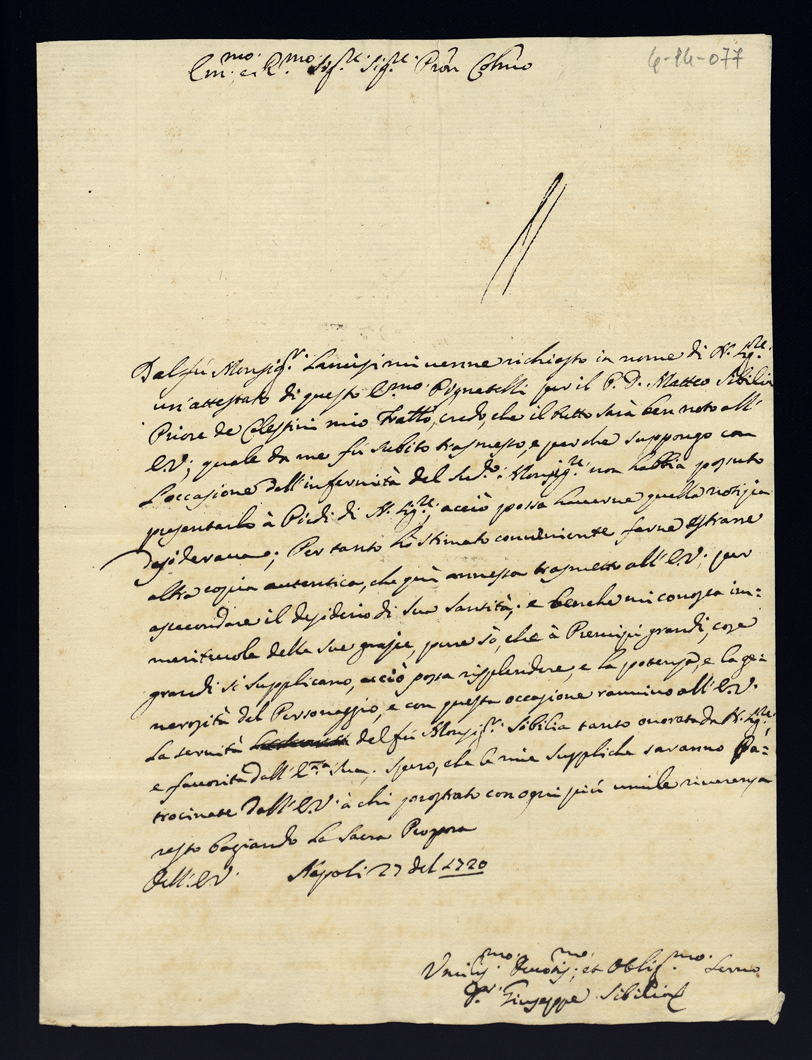 Em.mo e R.mo Sig.re Sig.re Pron Colmo
6-14-077
Dal fù Monsig.r Lancisi mi venne richiesto in nome di N. Sig.re
un'attestato di questo E.mo Pignatelli per il P. D. Matteo Sibilia
Priore de Celestini mio Fratto, credo, che il tutto sarà ben noto all'
E.V; quale da me fù subito trasmesso, e perche suppongo con
l'occasione dell'infermità del Sud.o Monsig.re non habbia possuto
presentarlo à Piedi di N. Sig.re, acciò possa haverne quella notizia
desiderava; Per tanto hò stimato conveniente farne estrarre
altra copia autentica, che quì annessa trasmetto all'E.V. per
assecondare il desiderio di Sua Santità; e benche mi conosca im=
meritevole delle sue grazie, pure sò, che à Prencipi grandi, cose
grandi si supplicano, acciò possa risplendere, e la potenza, e la ge=
nerosità del Personaggio, e con questa occasione rammino all'E.V.
la servità del fù Monsig.r Sibilia tanto onorata da N. Sig.re
e favorita dall'E.za Sua; spero, che le mie suppliche saranno Pa=
trocinate dall'E.V. à chi prostrato con ogni più umile riverenza
resto bagiando la Sacra Porpora
Dell'E.V. Napoli 27 del 1720
Umiliss.mo Devotis.mo et Oblig.mo Servo
Giuseppe Sibilia